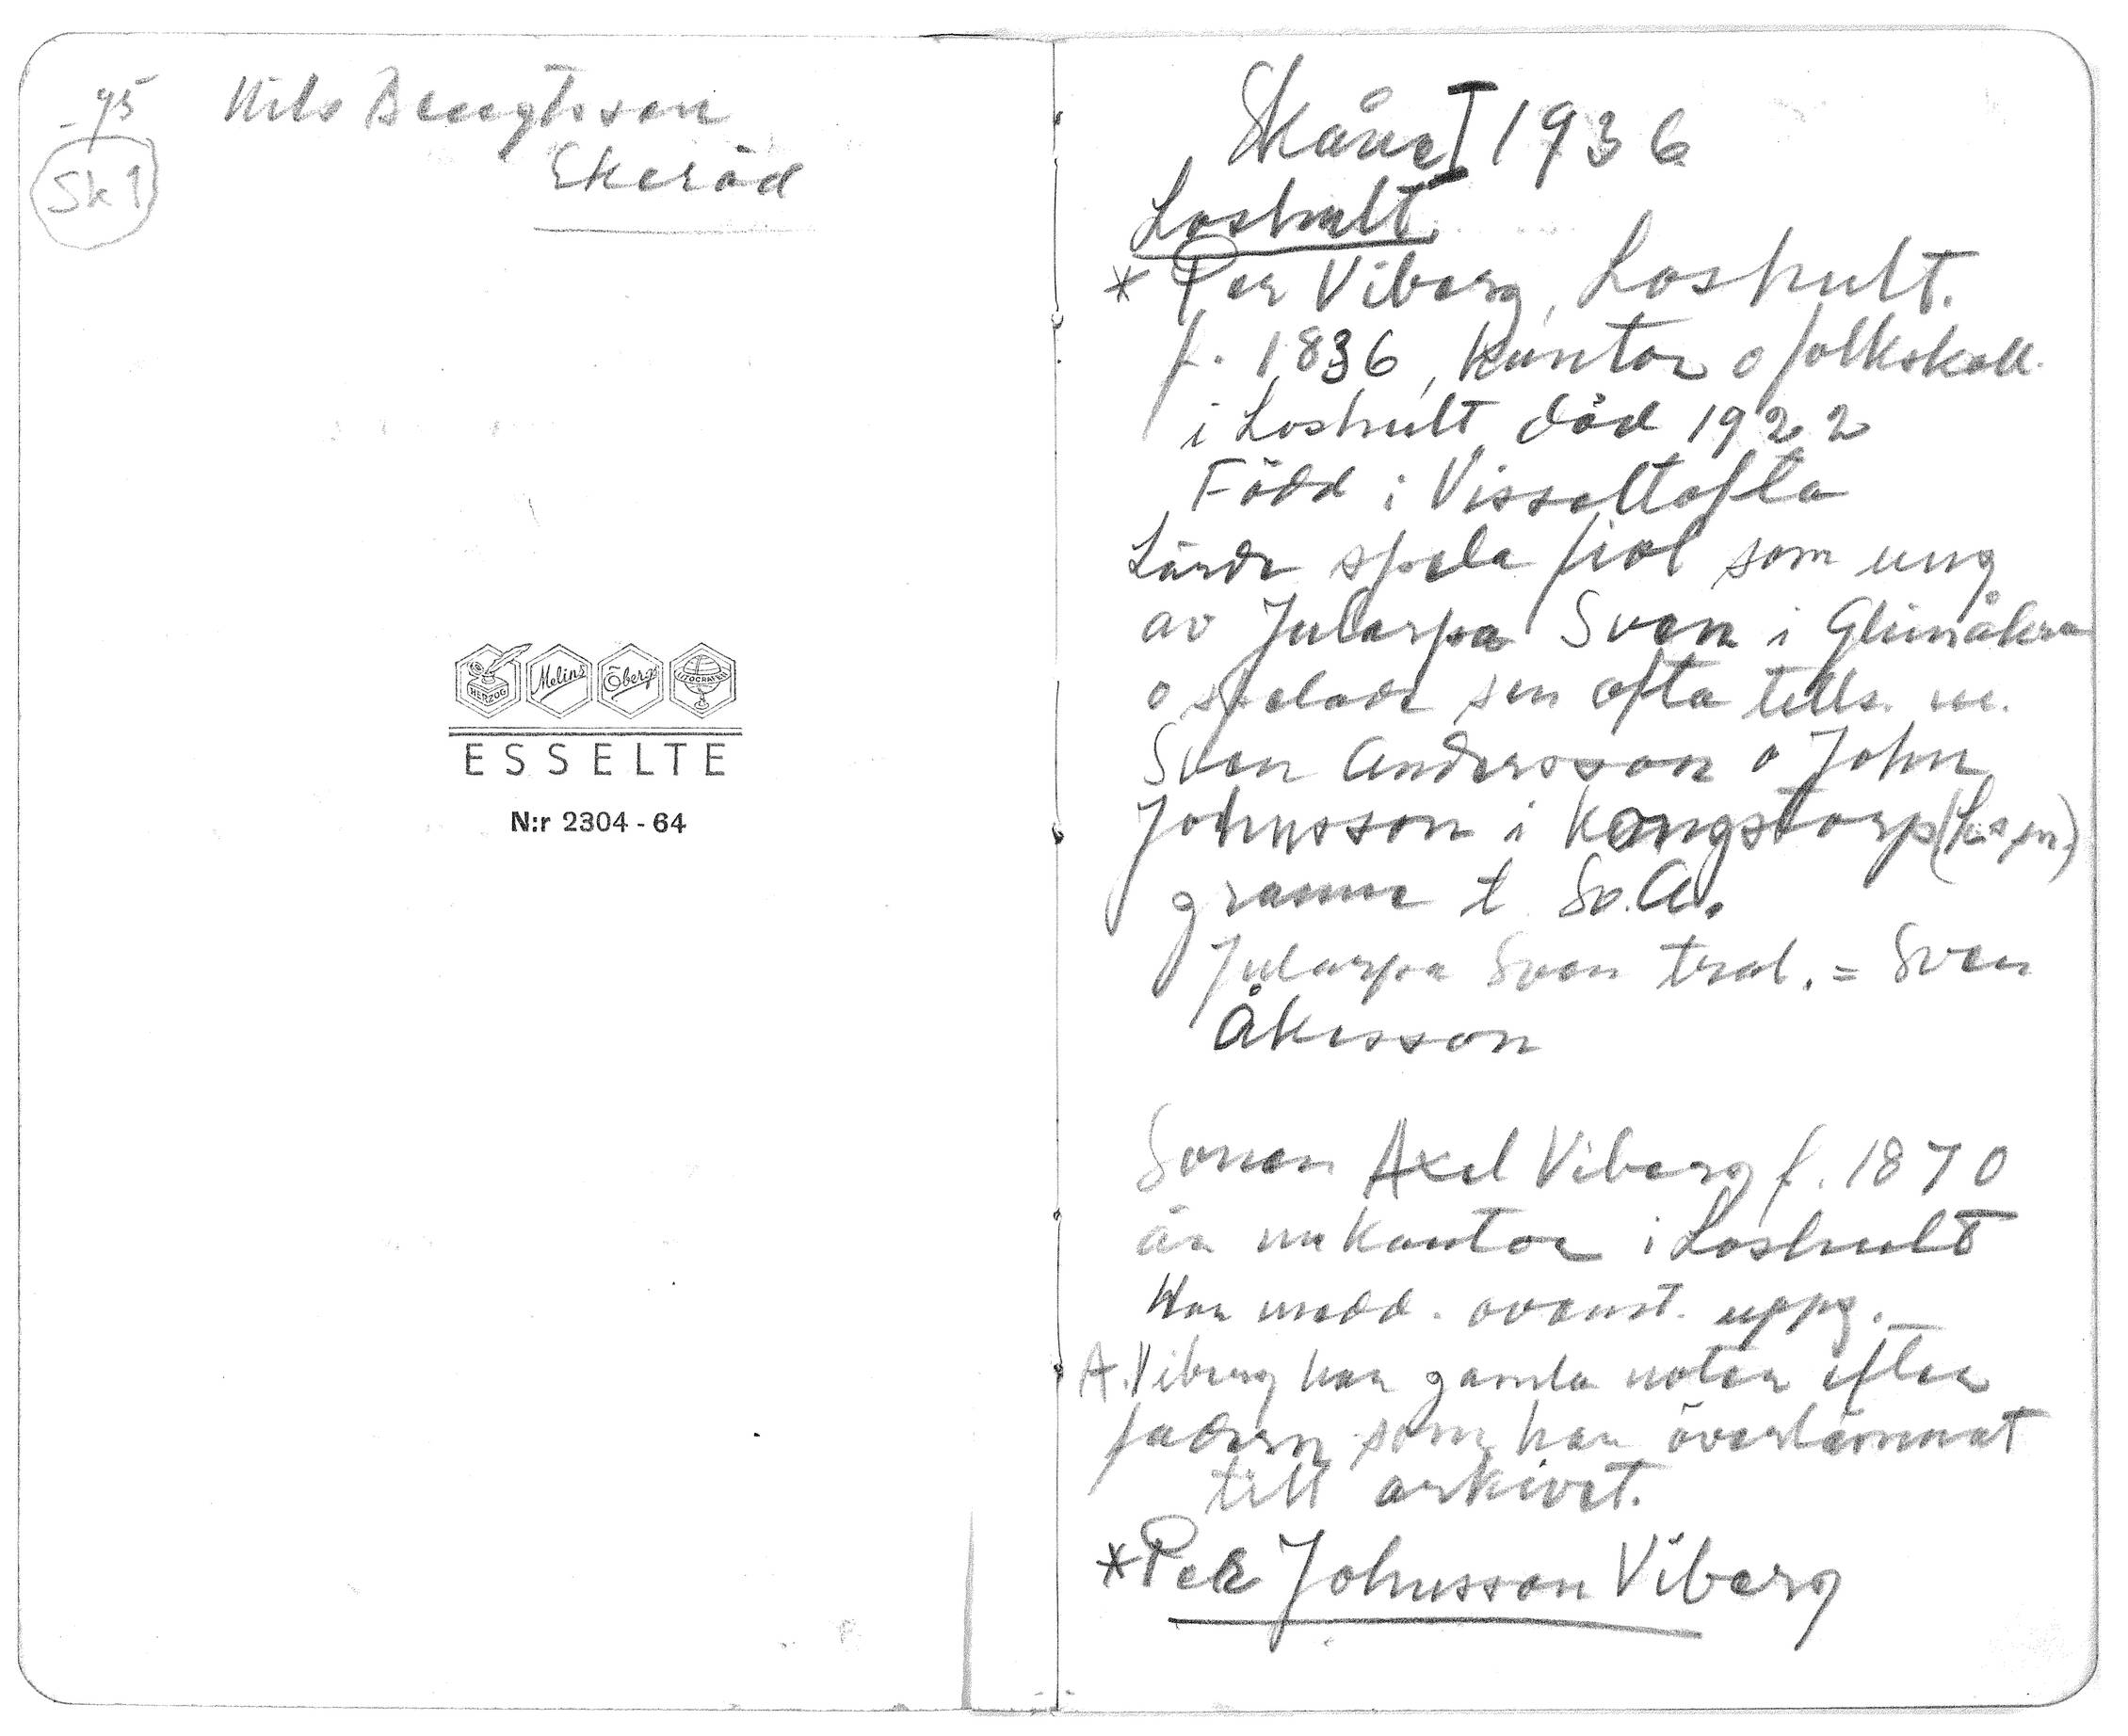 -45 Nils Bengtsson
Sk 1 Ekeröd
HERZOG Melins Öbergs LITOGRAFEN
ESSELTE
N:r 2304-64
Skåne I 1936
Loshult.
* Per Viberg, Loshult.
f. 1836, kantor o folkskoll.
i Loshult, död 1922
Född i Visseltofta
Lärde spela fiol som ung
av Jularpa Sven i Glimåkra
o spelade sen ofta tills. m.
Sven Andersson o John
Johnsson i Kongstorp
granne t. Sv.A.
Jularpa Sven trol. = Sven
Åkesson
Sonen Axel Viberg f. 1870
är nu kantor i Loshult
Har medd. ovanst. uppg.
A. Viberg har gamla noter efter
fadern som han överlämnat
till arkivet.
* Per Johnsson Viberg